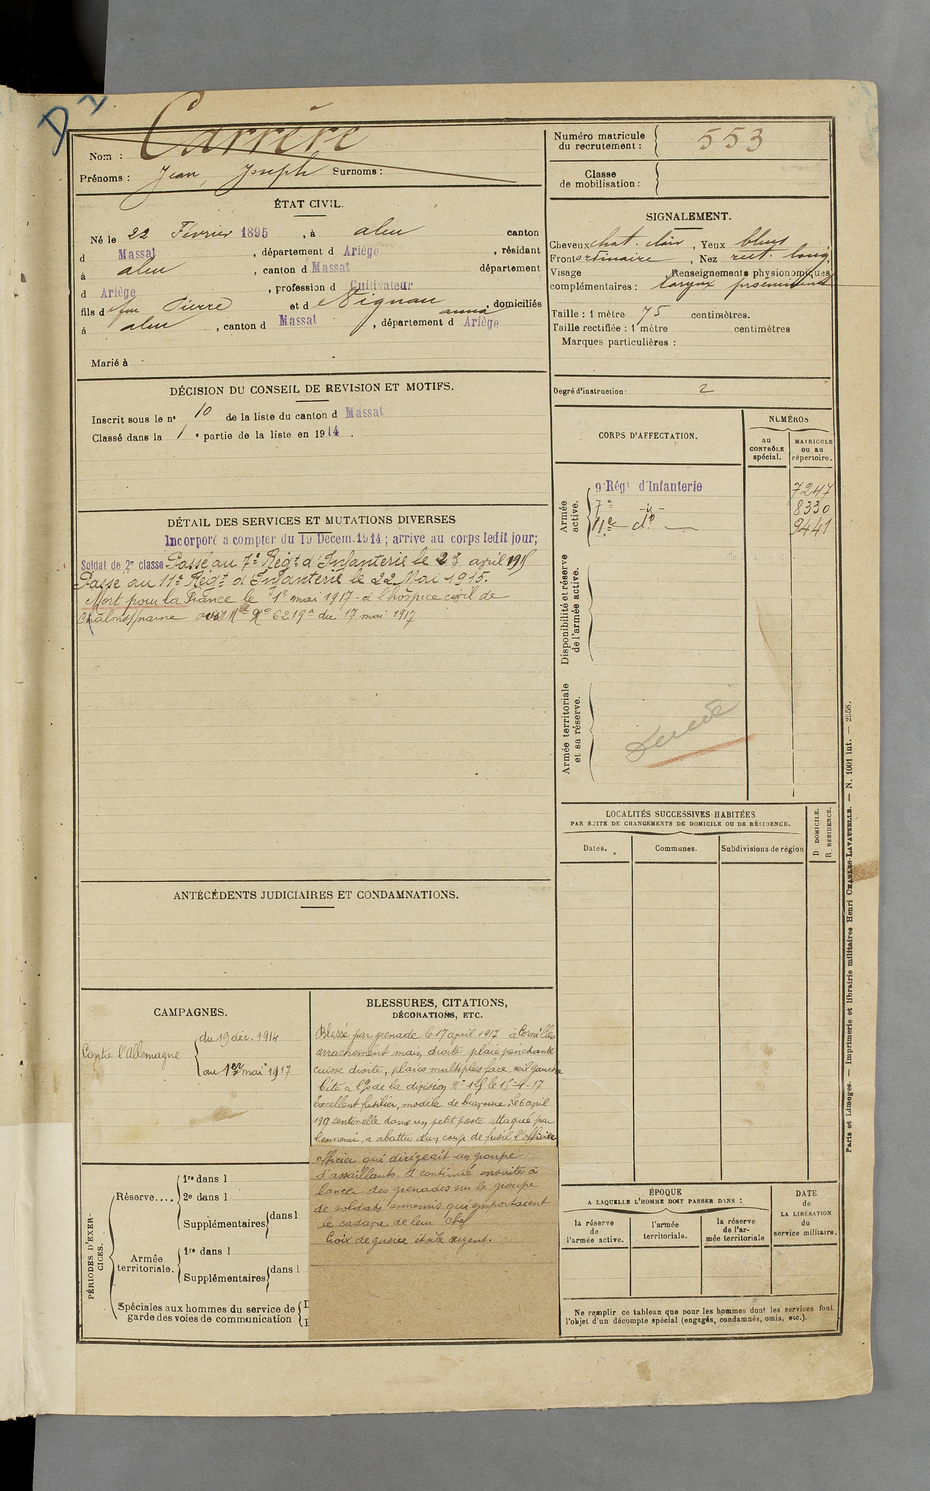 D
Nom :
Carrère
Prénoms : Jean, Joseph Surnoms :
Numéro matricule
du recrutement : 553
Classe
de mobilisation :
ÉTAT CIVIL.
Né le 22 Février 1895 , à aleu canton
d Massat , département d Ariège , résidant
à aleu , canton d Massat département
d Ariège , profession d Cultivateur
fils d feu Pierre et d Nignau anna , domiciliés
à aleu , canton d Massat , département d Ariège
Marié à
SIGNALEMENT.
Cheveux chat. clair , Yeux bleus
Front ordinaire , Nez rect. long
Visage Renseignements physionomiques
complémentaires : larynx proéminent
Taille : 1 mètre 75 centimètres.
Taille rectifiée : 1 mètre centimètres
Marques particulières :
Degré d'instruction : 2
DÉCISION DU CONSEIL DE REVISION ET MOTIFS.
Inscrit sous le n° 10 de la liste du canton d Massat
Classé dans la 1 e partie de la liste en 1914 .
CORPS D'AFFECTATION.
NUMÉROS
au
CONTRÔLE
spécial.
MATRICULE
ou au
répertoire.
Armée
active.
9e Régt d'Infanterie 7247
7e -"- 8330
11e do 9441
Disponibilité et réserve
de l'armée active.
Armée territoriale
et sa réserve.
DÉTAIL DES SERVICES ET MUTATIONS DIVERSES
Incorporé a compter du 19 Décem. 1914 ; arrive au corps ledit jour;
Soldat de 2e classe Passé au 7e Régt d'Infanterie le 23 avril 1915
Passé au 11e Régt d'Infanterie le 22 Mai 1915.
Mort pour la France le 1er mai 1917 - à l'hospice civil de
Chalons/marne avis Mel No 6219a du 17 mai 1917
ANTÉCÉDENTS JUDICIAIRES ET CONDAMNATIONS.
LOCALITÉS SUCCESSIVES HABITÉES
PAR SUITE DE CHANGEMENTS DE DOMICILE OU DE RÉSIDENCE.
Dates.
Communes.
Subdivisions de région
D DOMICILE.
R. RÉSIDENCE.
CAMPAGNES.
Contre l'Allemagne
du 19 déc. 1914
au 1er mai 1917
BLESSURES, CITATIONS,
DÉCORATIONS, ETC.
Blessé par grenade le 17 avril 1917 à Cornillet
arrachement main droite, plaie pénétrante
cuisse droite, plaies multiples face, œil gauche
Cité à l'O de la division le 15-4-17
Excellent fusilier, modèle de bravoure : le 6 avril
1917 sentinelle dans un petit poste attaqué par
l'ennemi a abattu d'un coup de fusil l'officier
officier qui dirigeait un groupe
d'assaillants. A continué ensuite à
lancer des grenades sur le groupe
de soldats ennemis qui emportaient
le cadavre de leur chef
Croix de guerre étoile argent.
PÉRIODES D'EXER-
CICES.
Réserve....
1re dans l
2e dans l
Supplémentaires dans l
Armée
territoriale.
1re dans l
Supplémentaires dans l
Spéciales aux hommes du service de
garde des voies de communication
ÉPOQUE
A LAQUELLE L'HOMME DOIT PASSER DANS :
la réserve
de
l'armée active.
l'armée
territoriale.
la réserve
de l'ar-
mée territoriale
DATE
de
LA LIBÉRATION
du
service militaire.
Ne remplir ce tableau que pour les hommes dont les services font
l'objet d'un décompte spécial (engagés, condamnés, omis, etc.).
Paris et Limoges. — Imprimerie et librairie militaires Henri CHARLES-LAVAUZELLE. — N. 1001 int. — 2558.